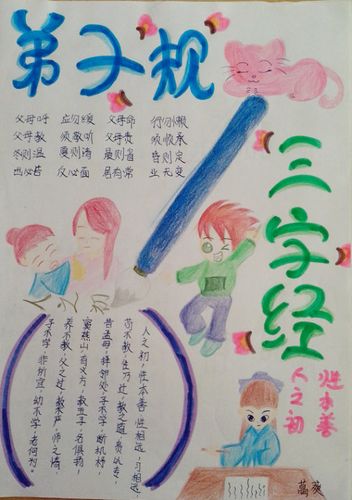 弟子规
父母呼 应勿缓 父母命 行勿懒
父母教 须敬听 父母责 须顺承
冬则温 夏则清 晨则省 昏则定
出必告 反必面 居有常 业无变
三字经
性本善
人之初
人之初
人之初,性本善,性相近,习相远,
苟不教,性乃迁,教之道,贵以专,
昔孟母,择邻处,子不学,断机杼
窦燕山,有义方,教五子,名俱扬,
养不教,父之过,教不严,师之惰,
子不学,非所宜,幼不学,老何为。